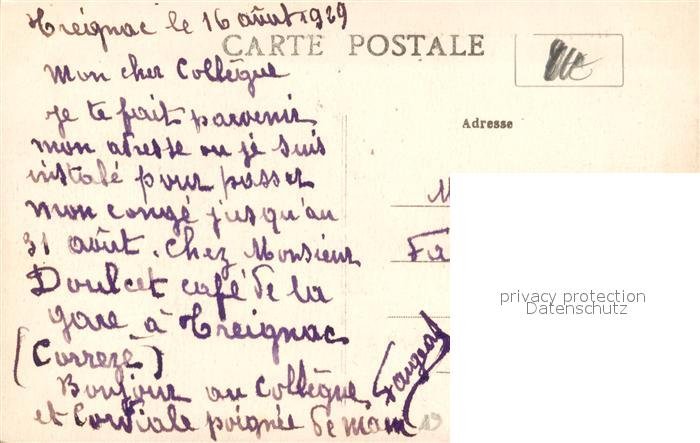 Treignac le 16 août 1929
CARTE POSTALE
Mon cher Collègue
Je te fait parvenir
mon adresse ou je suis
instalé pour passer
mon congé jusqu'au
31 août. chez Monsieur
Doulcet café de la
gare à Treignac
(Correze)
Bonjour au Collègue
et Cordiale poignée de main
Adresse
M
Fa
privacy protection
Datenschutz